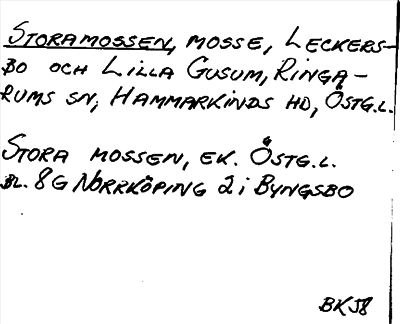 STORAMOSSEN, MOSSE, LECKERS-
BO OCH LILLA GUSUM, RINGA-
RUMS SN, HAMMARKINDS HD, ÖSTG.L.
STORA MOSSEN, EK. ÖSTG.L.
BL. 8G NORRKÖPING 2i BYNGSBO
BK58